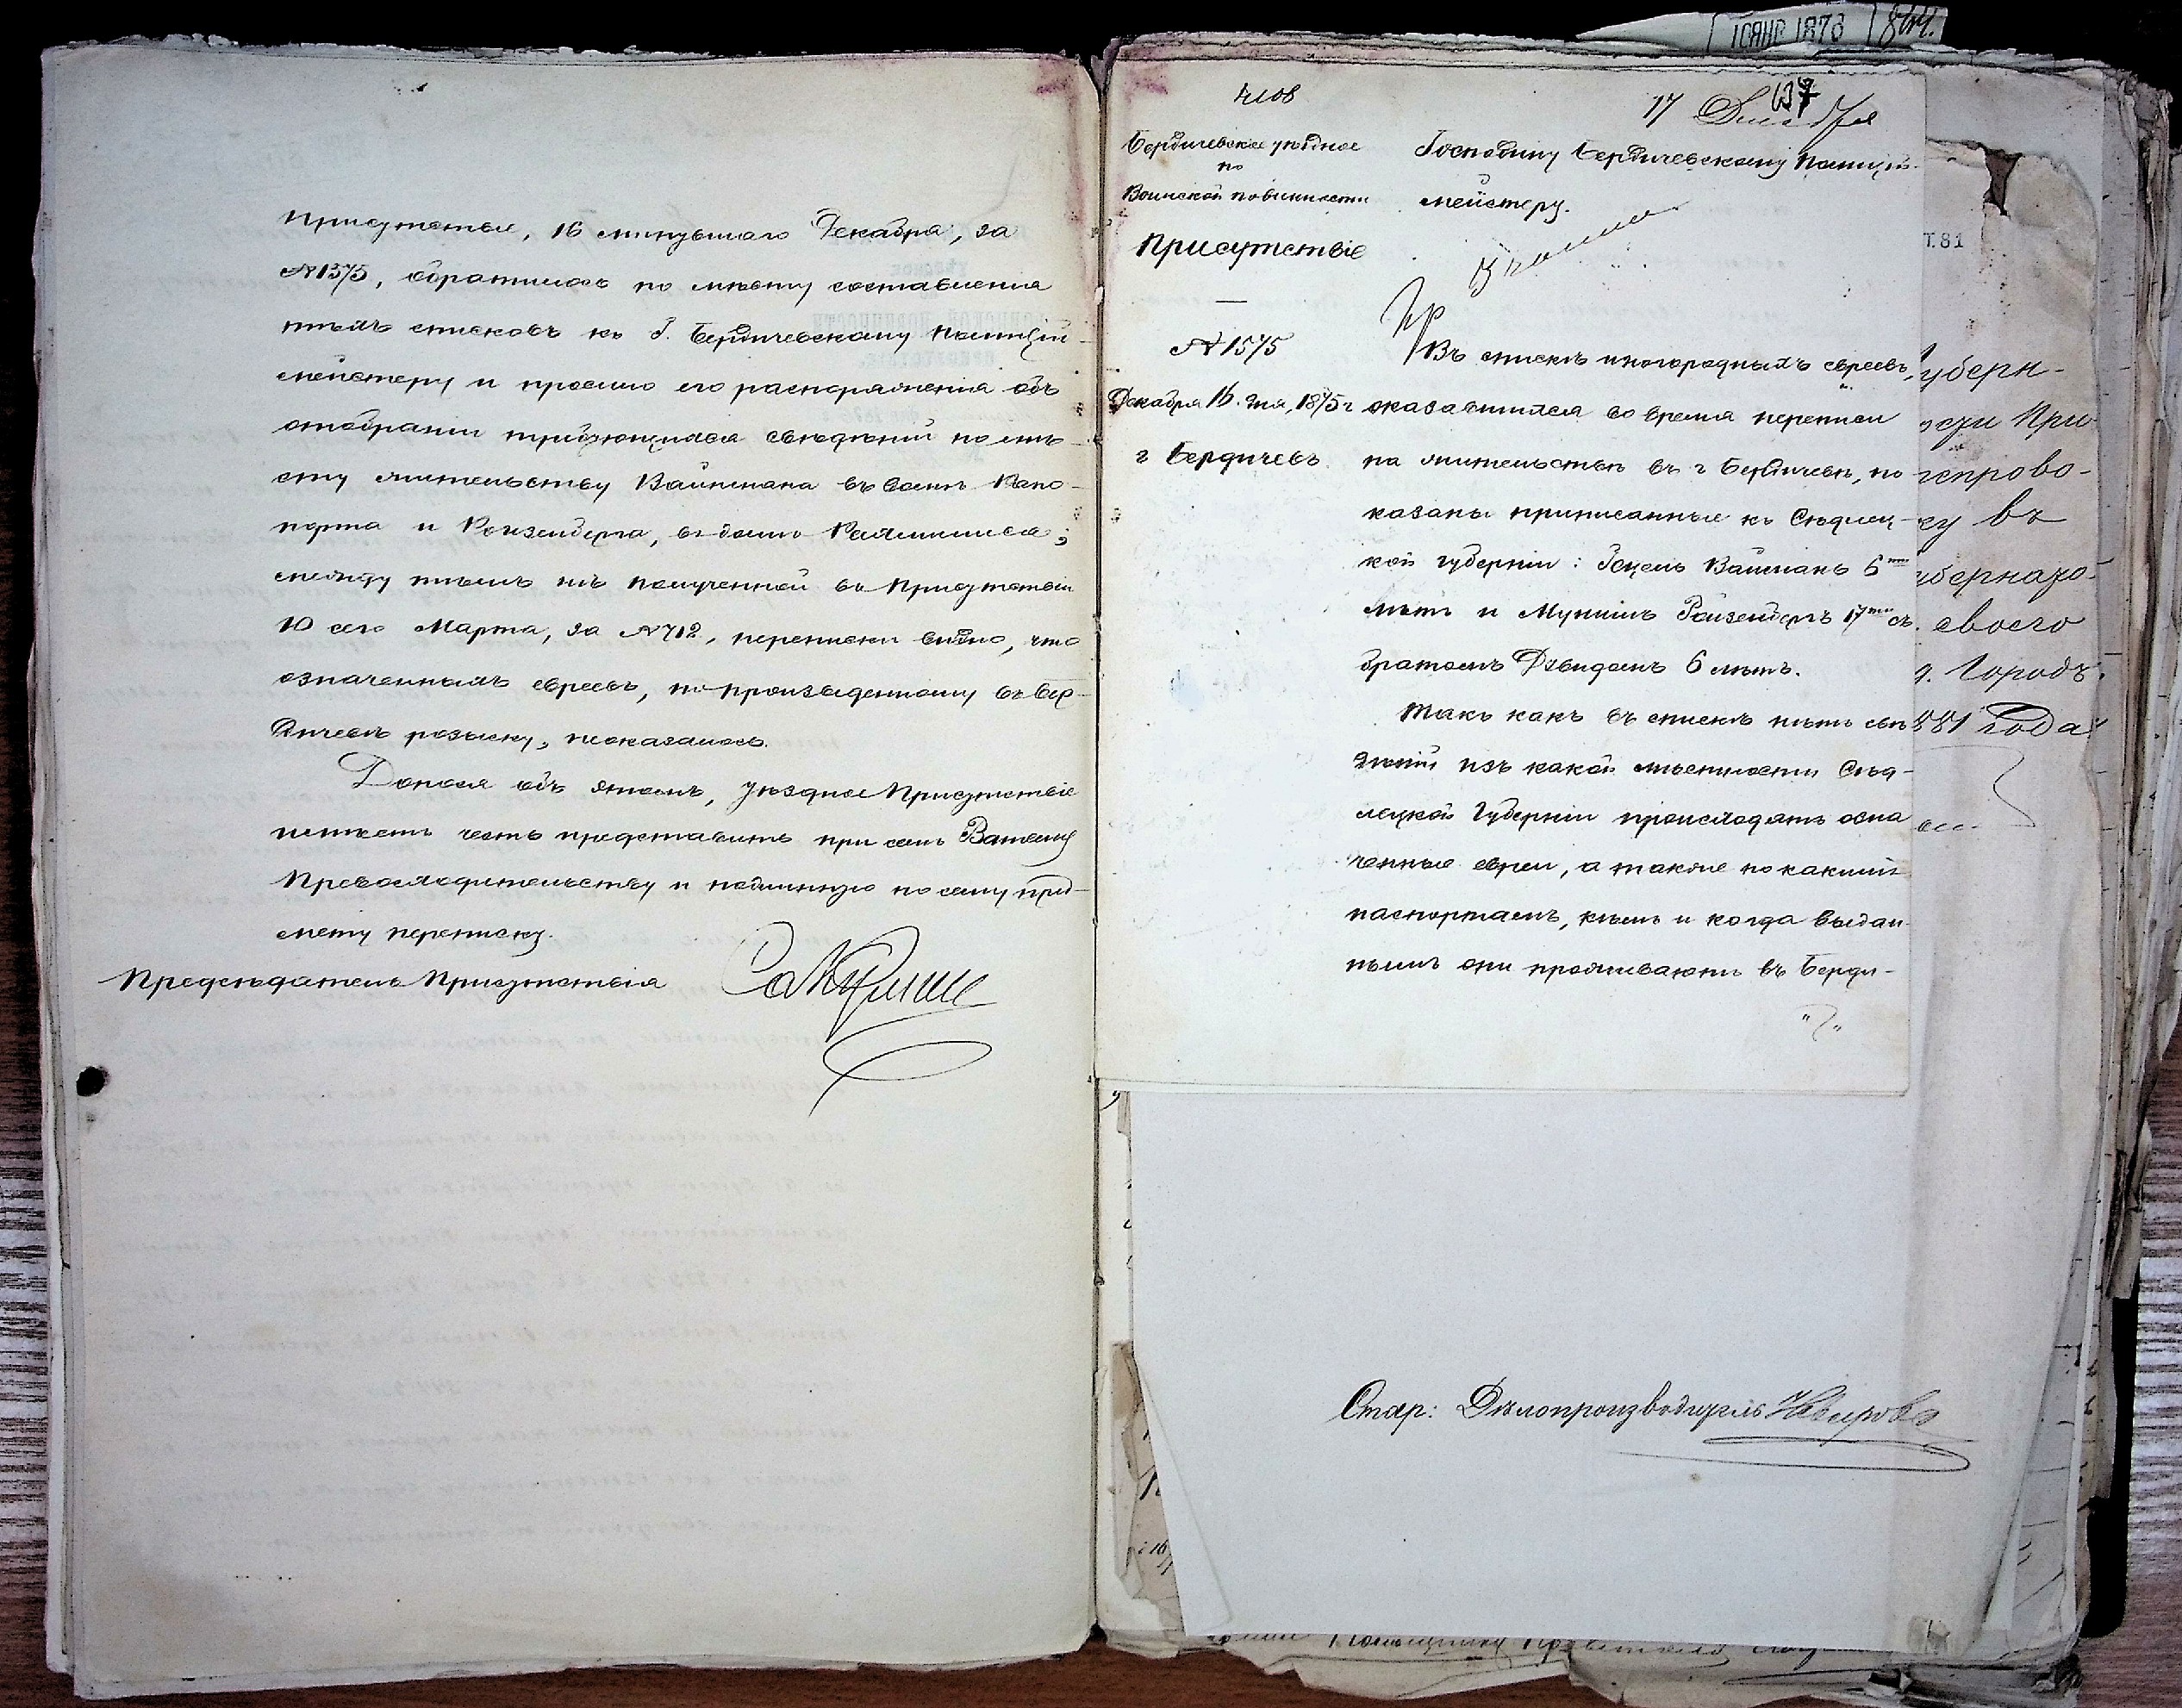 Присутствіе, 16 минувшаго Декабря, за
№ 1575, обратилось по мѣсту составленія
тѣхъ списковъ къ Г. Бердичевскому Полицій-
мейстеру и просило его распоряженія объ
отобраніи требующихся свѣдѣній по мѣ-
сту жительству Вайнмана въ домѣ Рапо-
порта и Ройзенберга, въ домѣ
между тѣмъ изъ полученной въ Присутствіи
10 сего Марта, за № 712, переписки видно, что
означенныхъ евреевъ, по произведенному въ Бер-
дичевѣ розыску, неоказалось.
Донося объ этомъ, уѣздное Присутствіе
имѣетъ честь представить при семъ Вашему
Превосходительству и подлинную по сему пред-
мету переписку.
Предсѣдатель Присутствія
17 Декабря
637
Бердичевское уѣздное
по
Воинской повинности
Присутствіе
№ 1575
Декабря 16 дня, 1875 г
г Бердичевъ.
Господину Бердичевскому Полицій-
мейстеру.
Въ спискѣ иногородныхъ евреевъ,
оказавшихся во время переписи
на жительствѣ въ г Бердичевѣ, по
казаны приписанные къ Сѣдлец-
кой губерніи: Гецель Вайнманъ 6ти
лѣтъ и Ройзенбергъ 17ти съ
братомъ Дувидомъ 6 лѣтъ.
Такъ какъ въ спискѣ нѣтъ свѣ
дѣній изъ какой мѣстности Сѣд-
лецкой Губерніи происходятъ озна
ченные евреи, а также по какимъ
паспортамъ, кѣмъ и когда выдан-
нымъ они проживаютъ въ Берди-
Т. 81
уберн-
При
репрово-
ку въ
убернато-
своего
г. Городъ.
881 года
Стар: Дѣлопроизводитель
1873